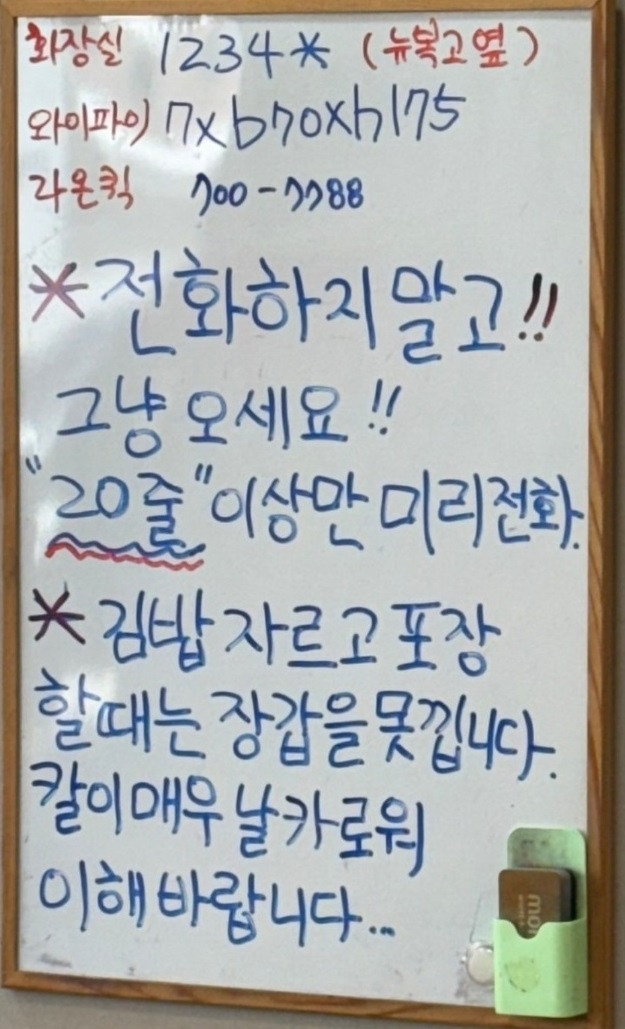 화장실 1234* (뉴복고옆)
와이파이 7xb770xh175
라온퀵 700-7788
*전화하지말고!!
그냥 오세요!!
"20줄"이상만 미리전화.
*김밥 자르고 포장
할때는 장갑을 못낍니다.
칼이 매우 날카로워
이해바랍니다...